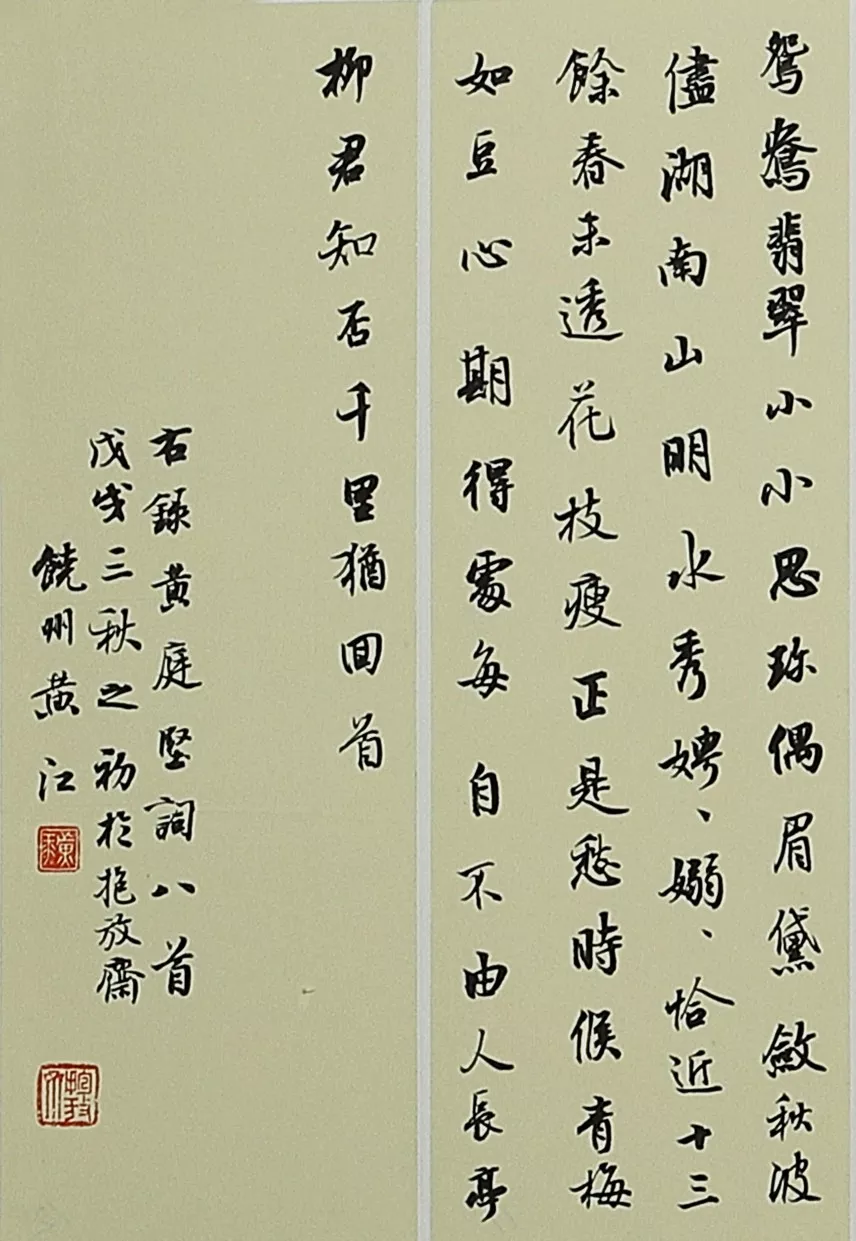 鴛鴦翡翠小小思珍偶眉黛斂秋波
儘湖南山明水秀娉、嫋、恰近十三
餘春未透花枝瘦正是愁時候青梅
如豆心期得處每自不由人長亭
柳君知否千里猶回首
右錄黄庭堅詞八首
戊戌三秋之初於抱放齋
饒州黄江